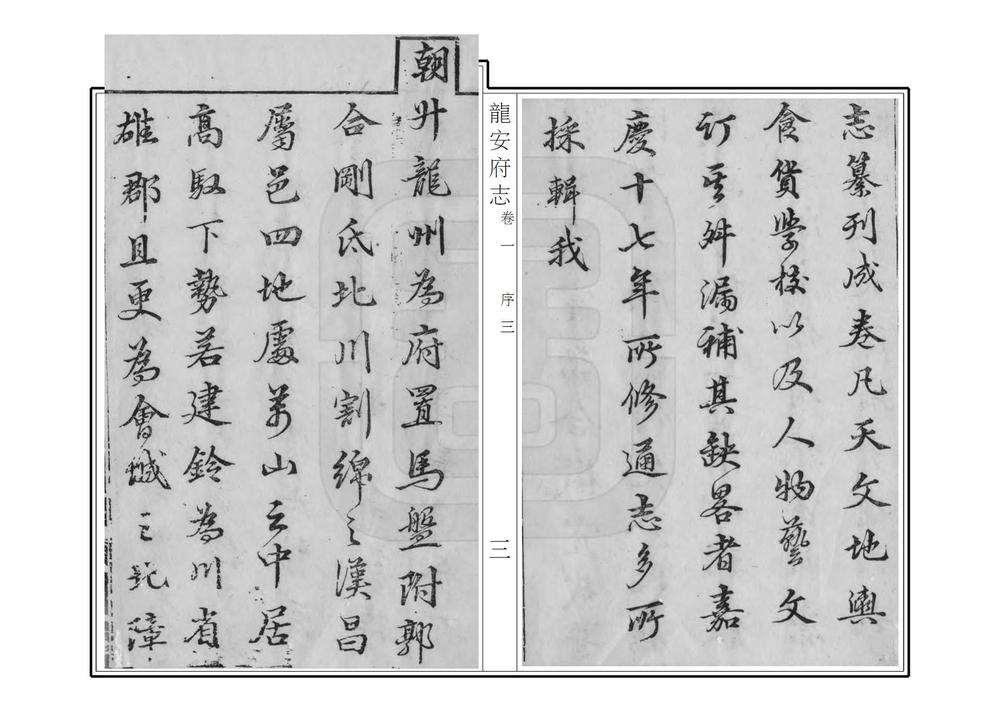 志纂刋成卷凡天文地輿
食貨學校以及人物藝文
訂其舛漏補其缺畧者嘉
慶十七年所修通志多所
採輯我
龍安府志 卷一 序三 三
朝升龍州為府置馬盤附郭
合剛氐北川割綿之漢昌
屬邑四地處萬山之中居
高馭下勢若建鈴為川省
雄郡且更為會城之障